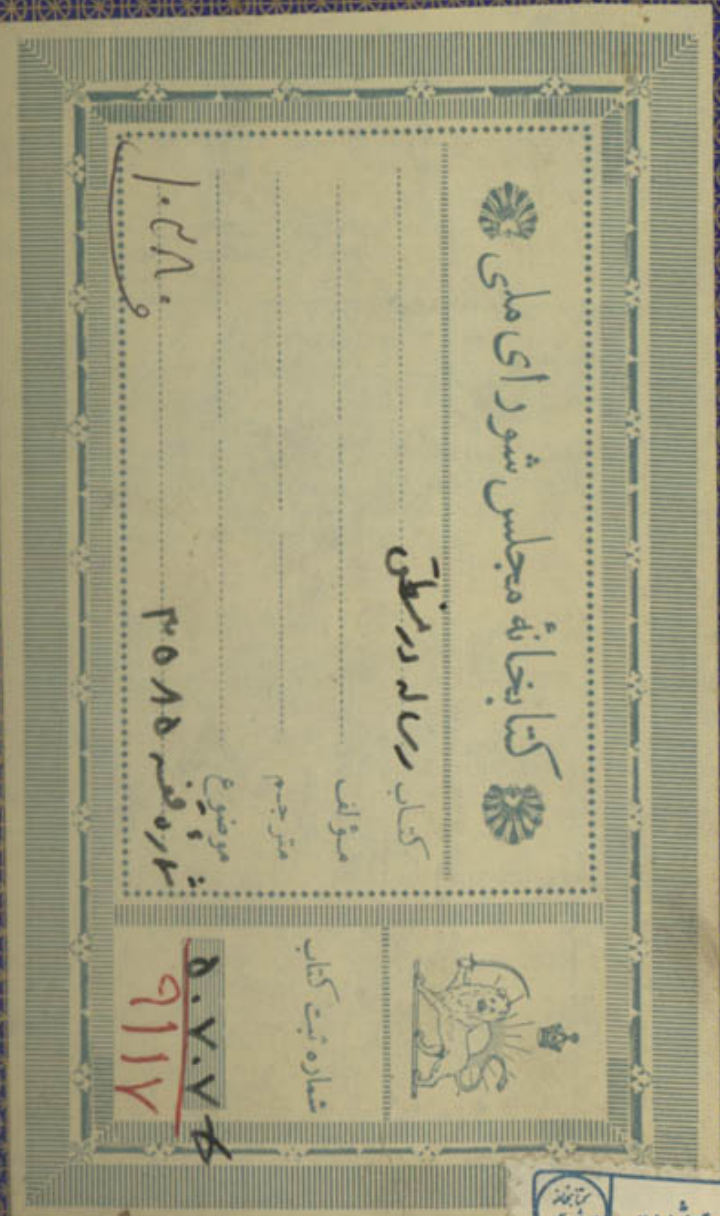 کتابخانهٔ مجلس شورای ملی
کتاب رساله در منطق
مؤلف
مترجم
موضوع
شماره قفسه ۳۵۸۵
۱۰۲۸۰
شماره ثبت کتاب
۵۰۷۰۷
۹۱۱۷